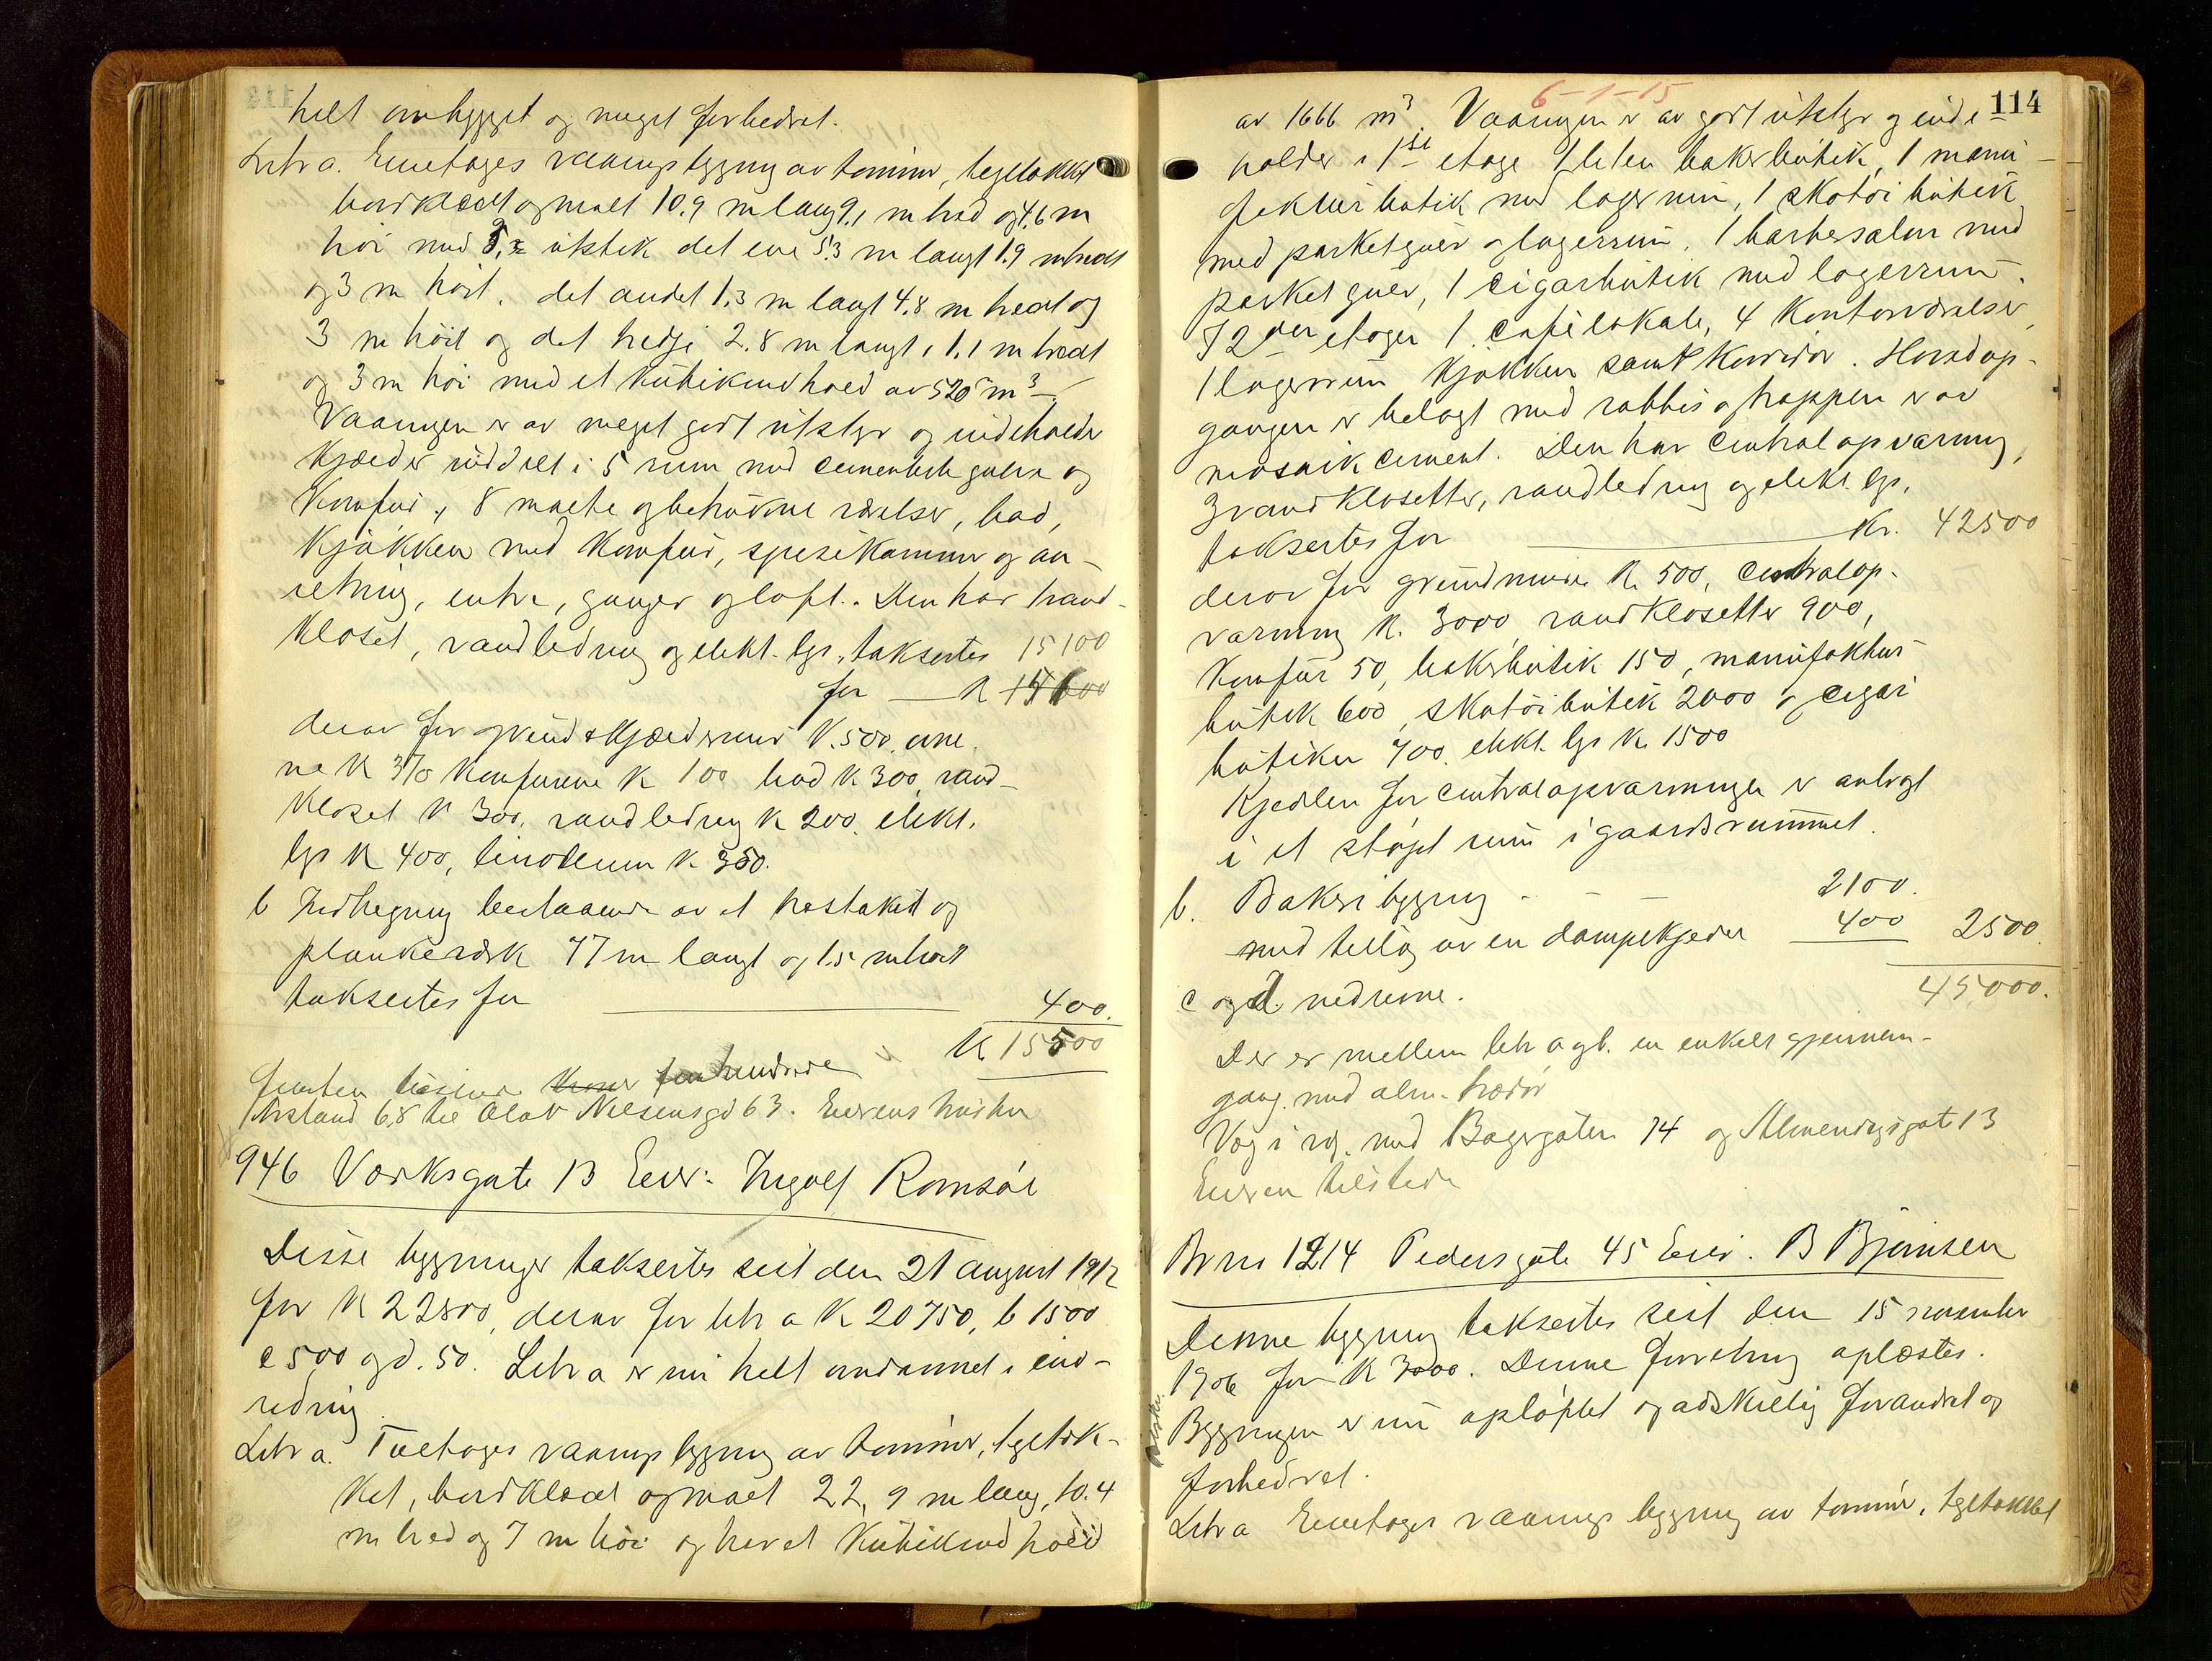 helt ombygget og meget forbedret.
Litr a. Enetages vaaningsbygning av tømmer, tegltækket
bordklædt og malt 10.9 m lang 9,1 m bred og 4,6 m
høi med utstik det ene 5.3 m langt 1.9 m bredt
og 3 m høit, det andet 1,3 m langt 4.8 m bredt og
3 m høit og det tredje 2.8 m langt, 1,1 m bredt
og 3 m høi med et kubikindhold av 520 m³
Vaaningen er av meget godt utstyr og indeholder
Kjælder inddelt i 5 rum med cementerte gulve og
Komfur, 8 malte og betrukne værelser, bad,
Kjøkken med Komfur, spisekammer og an-
retning, entre, ganger og loft. Den har vand-
kloset, vandledning og elekt. lys, taksertes 15100
for K
derav for grund & kjældermur K. 500, ovne-
ne K 370 Komfurene K 100 bad K 300, vand-
kloset K 300, vandledning K 200. elekt.
lys K 400, linoleum K 350.
b Indhegning bestaaende av et hestakit og
plankeværk 77 m langt og 1.5 m høit
taksertes for 400.
K 15500
Femten tusinde Kroner femhundrede
Avstand 6,8 til Olav Nielsensgd 63. Eierens hustru
946 Værksgate 13 Eier: Ingolf Romsøe
Disse bygninger taksertes sist den 21 august 1912
for K 22800, derav for litr a K 20750, b 1500
c 500 og d. 50. Litr a er nu helt omdannet i ind-
redning.
Litr a. Toetages vaaningsbygning av tømmer, tegltæk-
ket, bordklædt og malt 22,9 m lang, 10.4
m bred og 7 m høi og har et Kubikindhold
6-1-15
114
av 1666 m³. Vaaningen er av godt utstyr og inde-
holder i 1ste etage 1 liten bakerbutik, 1 manu-
fakturbutik med lagerrum, 1 skotøibutik
med parketgulv og lagerrum, 1 barbersalon med
parketgulv, 1 cigarbutik med lagerrum.
I 2den etage 1 cafelokale, 4 Kontorværelser,
1 lagerrum Kjøkken samt Korridor. Hovedop-
gangen er belagt med rabbis og trappen er av
mosaik cement. Den har centralopvarming,
3 vandklosetter, vandledning og elekt. lys,
taksertes for Kr. 42500
derav for grundmuren K. 500, centralop-
varming K. 3000 vandklosetter 900,
Komfur 50, bakerbutik 150, manufaktur-
butik 600, skotøibutik 2000 og cigar
butiken 700. elekt. lys K. 1500
Kjedlen for centralopvarmingen er anbragt
i et støpt rum i gaardsrummet.
b. Bakeribygning 2100.
med tillæg av en dampkjedel 400 2500.
45,000.
c og d. nedrevne.
Der er mellem litr a og b. en enkelt gjennem-
gang med alm. trædør
Væg i væg med Bagergaten 14 og Almenningsgat 13
Eieren tilstede
Br no 1214 Pedersgate 45 Eier. B Bjørnsen
Denne bygning taksertes sist den 15 november
1906 for K 3000. Denne forretning oplæstes.
Bygningen er nu opløftet og adskillig forandret og
forbedret.
Litr a Enetages vaaningsbygning av tømmer, tegltækket